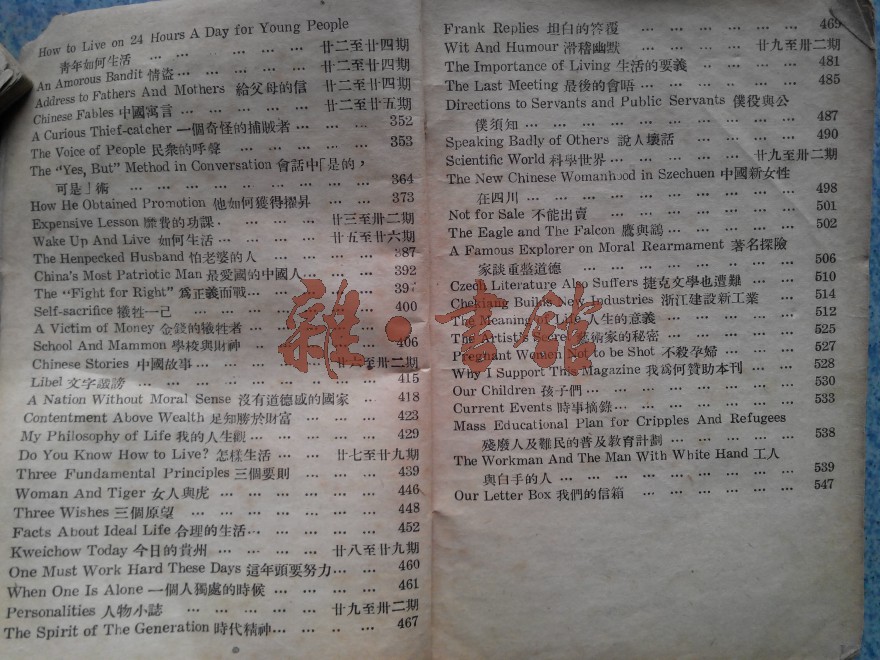 How to Live on 24 Hours A Day for Young People
青年如何生活 … … … … … 廿二至廿四期
An Amorous Bandit 情盜… … … … … 廿二至廿四期
Address to Fathers And Mothers 給父母的信 廿二至廿四期
Chinese Fables 中國寓言… … … … … 廿二至廿五期
A Curious Thief-catcher 一個奇怪的捕賊者 … … … 352
The Voice of People 民衆的呼聲 … … … … … 353
The "Yes, But" Method in Conversation 會話中「是的，
可是」術 … … … … … … … 364
How He Obtained Promotion 他如何獲得擢昇 … … 373
Expensive Lesson 靡費的功課… … … … 廿三至卅二期
Wake Up And Live 如何生活… … … … 廿五至廿六期
The Henpecked Husband 怕老婆的人 … … … … 387
China's Most Patriotic Man 最愛國的中國人… … … 392
The "Fight for Right" 爲正義而戰… … … … 39
Self-sacrifice 犧牲一己 … … … … 400
A Victim of Money 金錢的犧牲者 … …
School And Mammon 學校與財神 … … … 406
Chinese Stories 中國故事… … … … 廿六至卅二期
Libel 文字誹謗 … … … … … … … 415
A Nation Without Moral Sense 沒有道德感的國家 … 418
Contentment Above Wealth 足知勝於財富 … … … 423
My Philosophy of Life 我的人生觀… … … … … 429
Do You Know How to Live? 怎樣生活… … 廿七至廿九期
Three Fundamental Principles 三個要則 … … … 439
Woman And Tiger 女人與虎 … … … … … … 446
Three Wishes 三個原望 … … … … … … … 448
Facts About Ideal Life 合理的生活… … … … … 452
Kweichow Today 今日的貴州 … … … … 廿八至廿九期
One Must Work Hard These Days 這年頭要努力… … 460
When One Is Alone 一個人獨處的時候 … … … … 461
Personalities 人物小誌 … … … … … 廿九至卅二期
The Spirit of The Generation 時代精神… … … … 467
Frank Replies 坦白的答覆 … … … … … … 469
Wit And Humour 滑稽幽默 … … … … 廿九至卅二期
The Importance of Living 生活的要義 … … … … 481
The Last Meeting 最後的會晤… … … … … … 485
Directions to Servants and Public Servants 僕役與公
僕須知… … … … … … … … 487
Speaking Badly of Others 說人壞話 … … … … 490
Scientific World 科學世界… … … … … 廿九至卅二期
The New Chinese Womanhood in Szechuen 中國新女性
在四川 … … … … … … … … 498
Not for Sale 不能出賣 … … … … … … … 501
The Eagle and The Falcon 鷹與鷂… … … … … 502
A Famous Explorer on Moral Rearmament 著名探險
家談重整道德 … … … … … … 506
Czech Literature Also Suffers 捷克文學也遭難 … … 510
Chekiang Builds New Industries 浙江建設新工業 … 514
The Meaning of Life 人生的意義… … … … … 512
The Artist's Secret 藝術家的秘密… … … … … 525
Pregnant Women Not to be Shot 不殺孕婦… … … 527
Why I Support This Magazine 我爲何贊助本刊… … 528
Our Children 孩子們… … … … … … … 530
Current Events 時事摘錄… … … … … … … 533
Mass Educational Plan for Cripples And Refugees
殘廢人及難民的普及教育計劃… … … … 538
The Workman And The Man With White Hand 工人
與白手的人 … … … … … … … 539
Our Letter Box 我們的信箱 … … … … … … 547
雜·書館